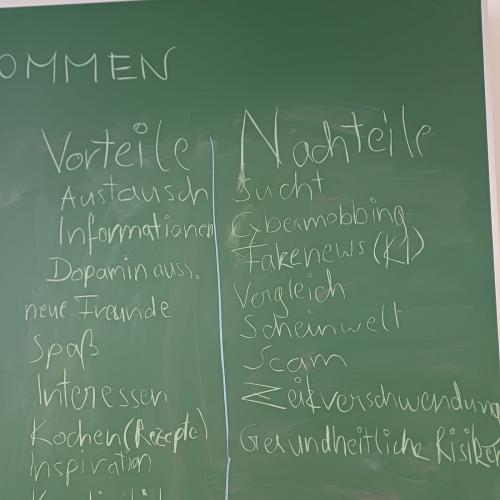 OMMEN
Vorteile
Austausch
Informationen
Dopamin auss.
neue Freunde
Spaß
Interessen
Kochen (Rezepte)
Inspiration
Nachteile
Sucht
Cybermobbing
Fakenews (KI)
Vergleich
Scheinwelt
Scam
Zeitverschwendung
Gesundheitliche Risiken